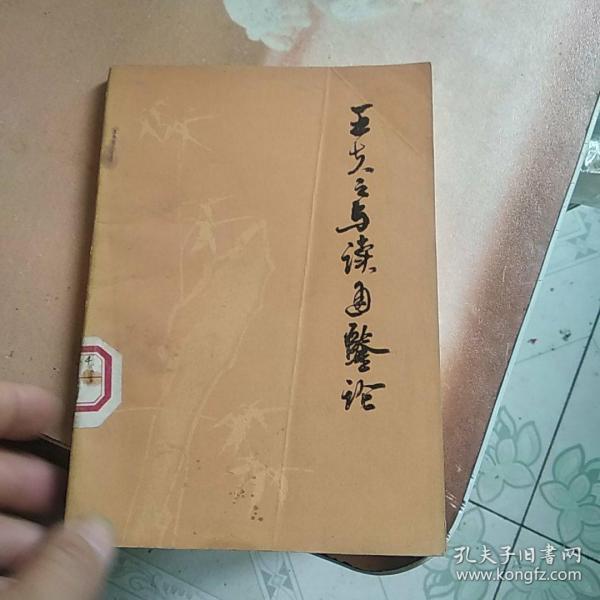 王夫之与读通鉴论
孔夫子旧书网
www.kongfz.com